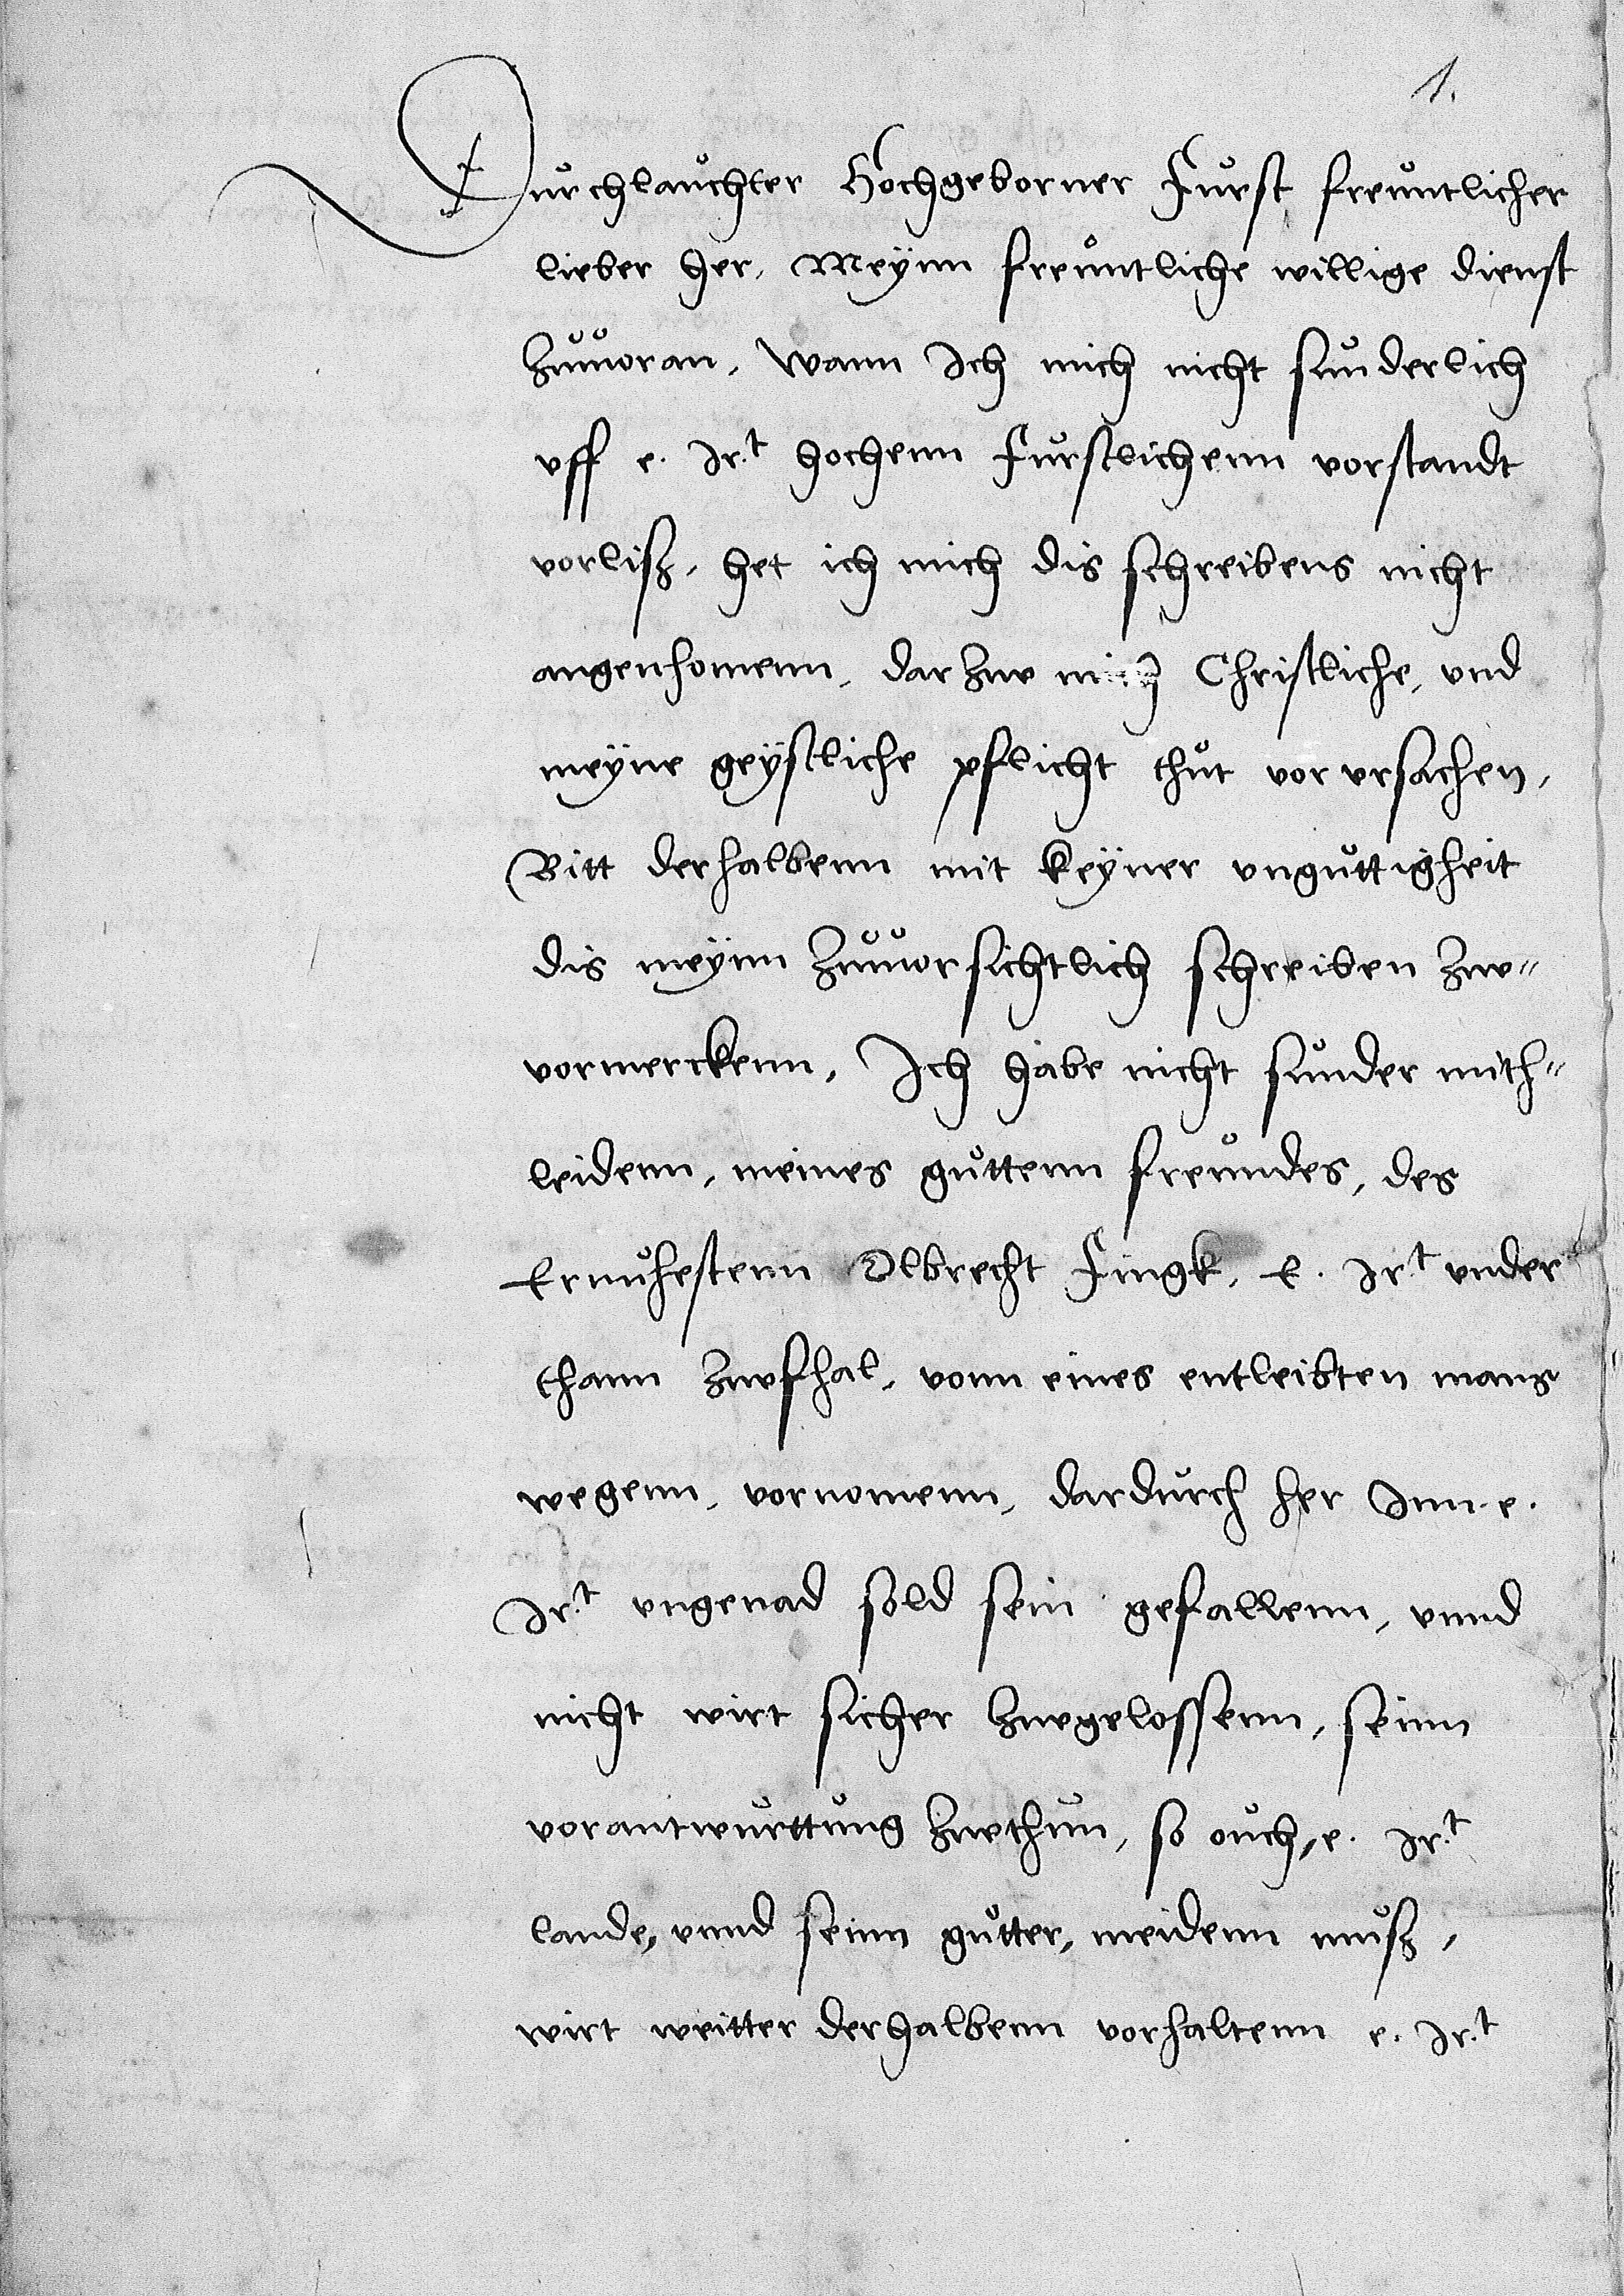 1.
Durchlauchter Hochgeborner Furst freuntlicher
lieber her, Meynn freuntliche willige dienst
Zuuoran, wann Ich mich nicht sunderlich
vff e. Ir.t hochenn furstlichenn vorstandt
vorlisz, het ich mich dis schreibens nicht
angenhomenn, dar zue mich Christliche, vnd
meÿne geÿstliche pflicht thut vorursachen,
Bitt derhalbenn mit keÿner vnguttigheit
dis meÿnn Zuuorsichtlich schreiben zue-
vormerckenn, Ich habe nicht sunder mith-
leidenn, meines guttenn freundes, des
Ernuhestenn Olbrecht Fingk, E. Ir.t vnder
thann zuefhal, vonn eines entleibten mans
wegenn, vornomenn, dardurch her Inn e.
Ir.t vngenad sold sein gefallenn, vnnd
nicht wirt sicher zuegelossenn, seinn
vorantwurttung zuethun, so ouch, e. Ir.t
lande, vnnd seinn gutter, meidenn musz,
wirt weitter derhalbenn vorhaltenn e. Ir.t